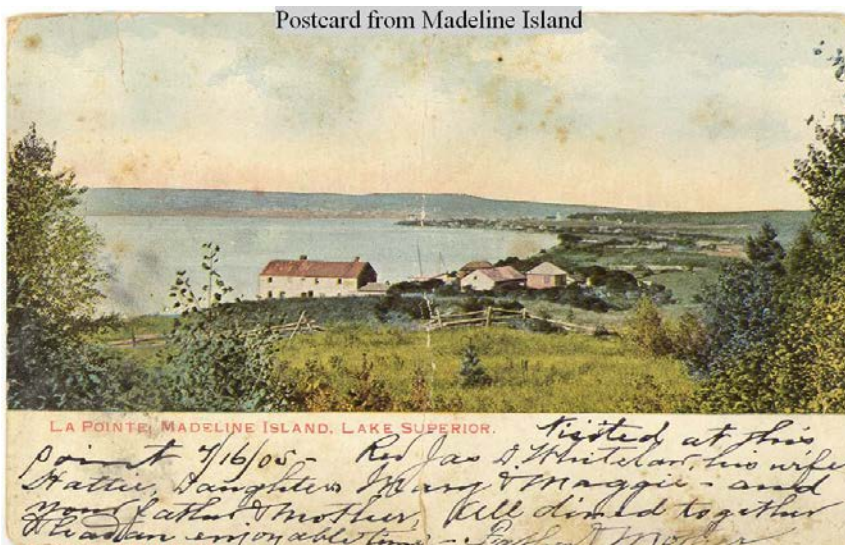 Postcard from Madeline Island
LA POINTE, MADELINE ISLAND, LAKE SUPERIOR.
Visited at this
point 7/16/05- Rev Jas D. Whitelaw, his wife
Hattie, Daughters Mary & Maggie - and
your father & Mother, All dined together
& had an enjoyable time - Father & Mother